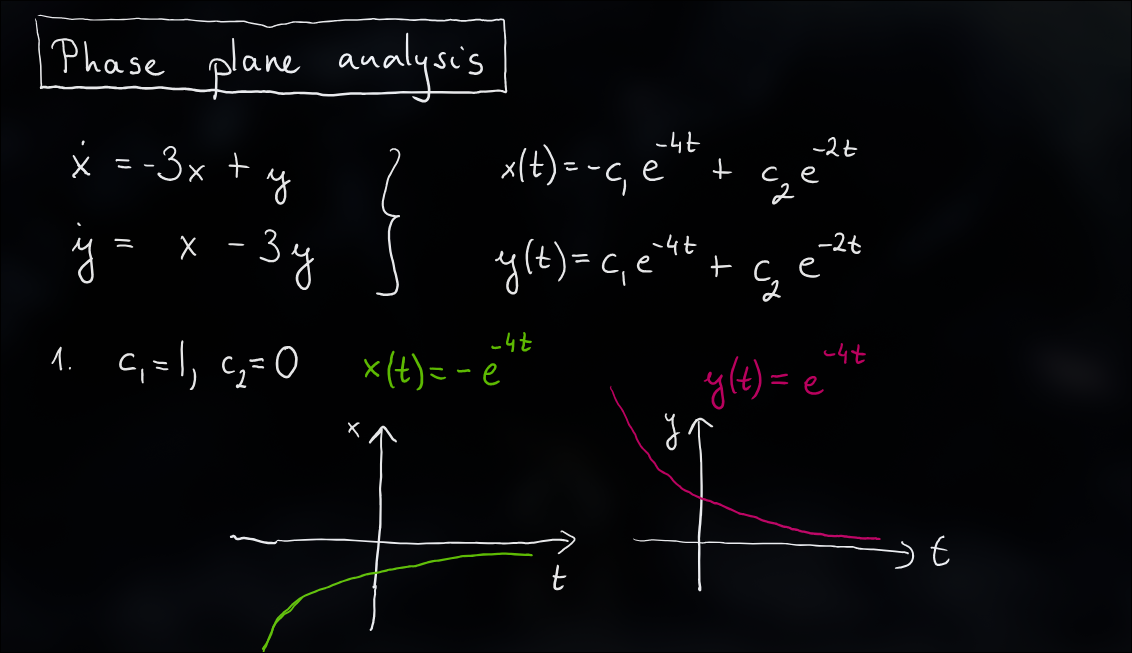 Phase plane analysis
ẋ = -3x + y
ẏ = x - 3y
x(t) = -c₁e^{-4t} + c₂e^{-2t}
y(t) = c₁e^{-4t} + c₂e^{-2t}
1. c₁=1, c₂=0 x(t) = -e^{-4t} y(t) = e^{-4t}
x y
t t